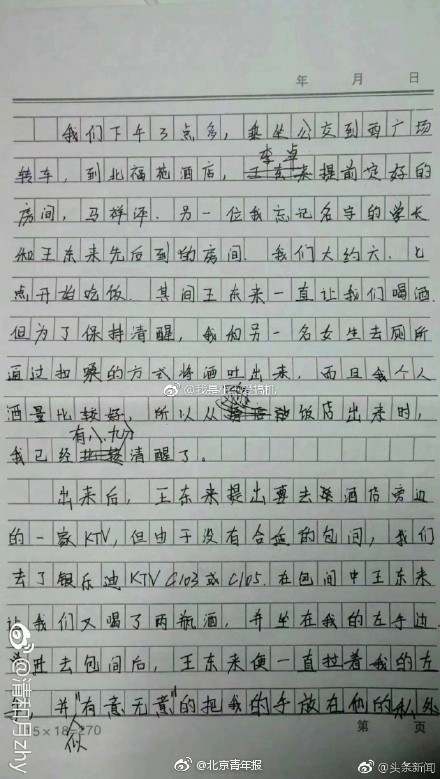 年 月 日
我们下午3点多，乘坐公交到西广场
转车，到北福苑酒店，李卓提前定好的
房间，马祥泽、另一位我忘记名字的学长
和王东来先后到的房间。我们大约六、七
点开始吃饭。其间王东来一直让我们喝酒
但为了保持清醒，我和另一名女生去厕所
通过扣嗓的方式将酒吐出来，而且我个人
酒量比较好，所以从饭店出来时，
我已经有八、九分清醒了。
出来后，王东来提出要去酒店旁边
的一家KTV，但由于没有合适的包间，我们
去了银乐迪KTV C103或C105。在包间中王东来
让我们又喝了两瓶酒，并坐在我的左手边
进去包间后，王东来便一直拉着我的左
并"有意无意"似的把我的手放在他的私处
15×18=270
第 页
@清和月zhy
@北京青年报
@头条新闻